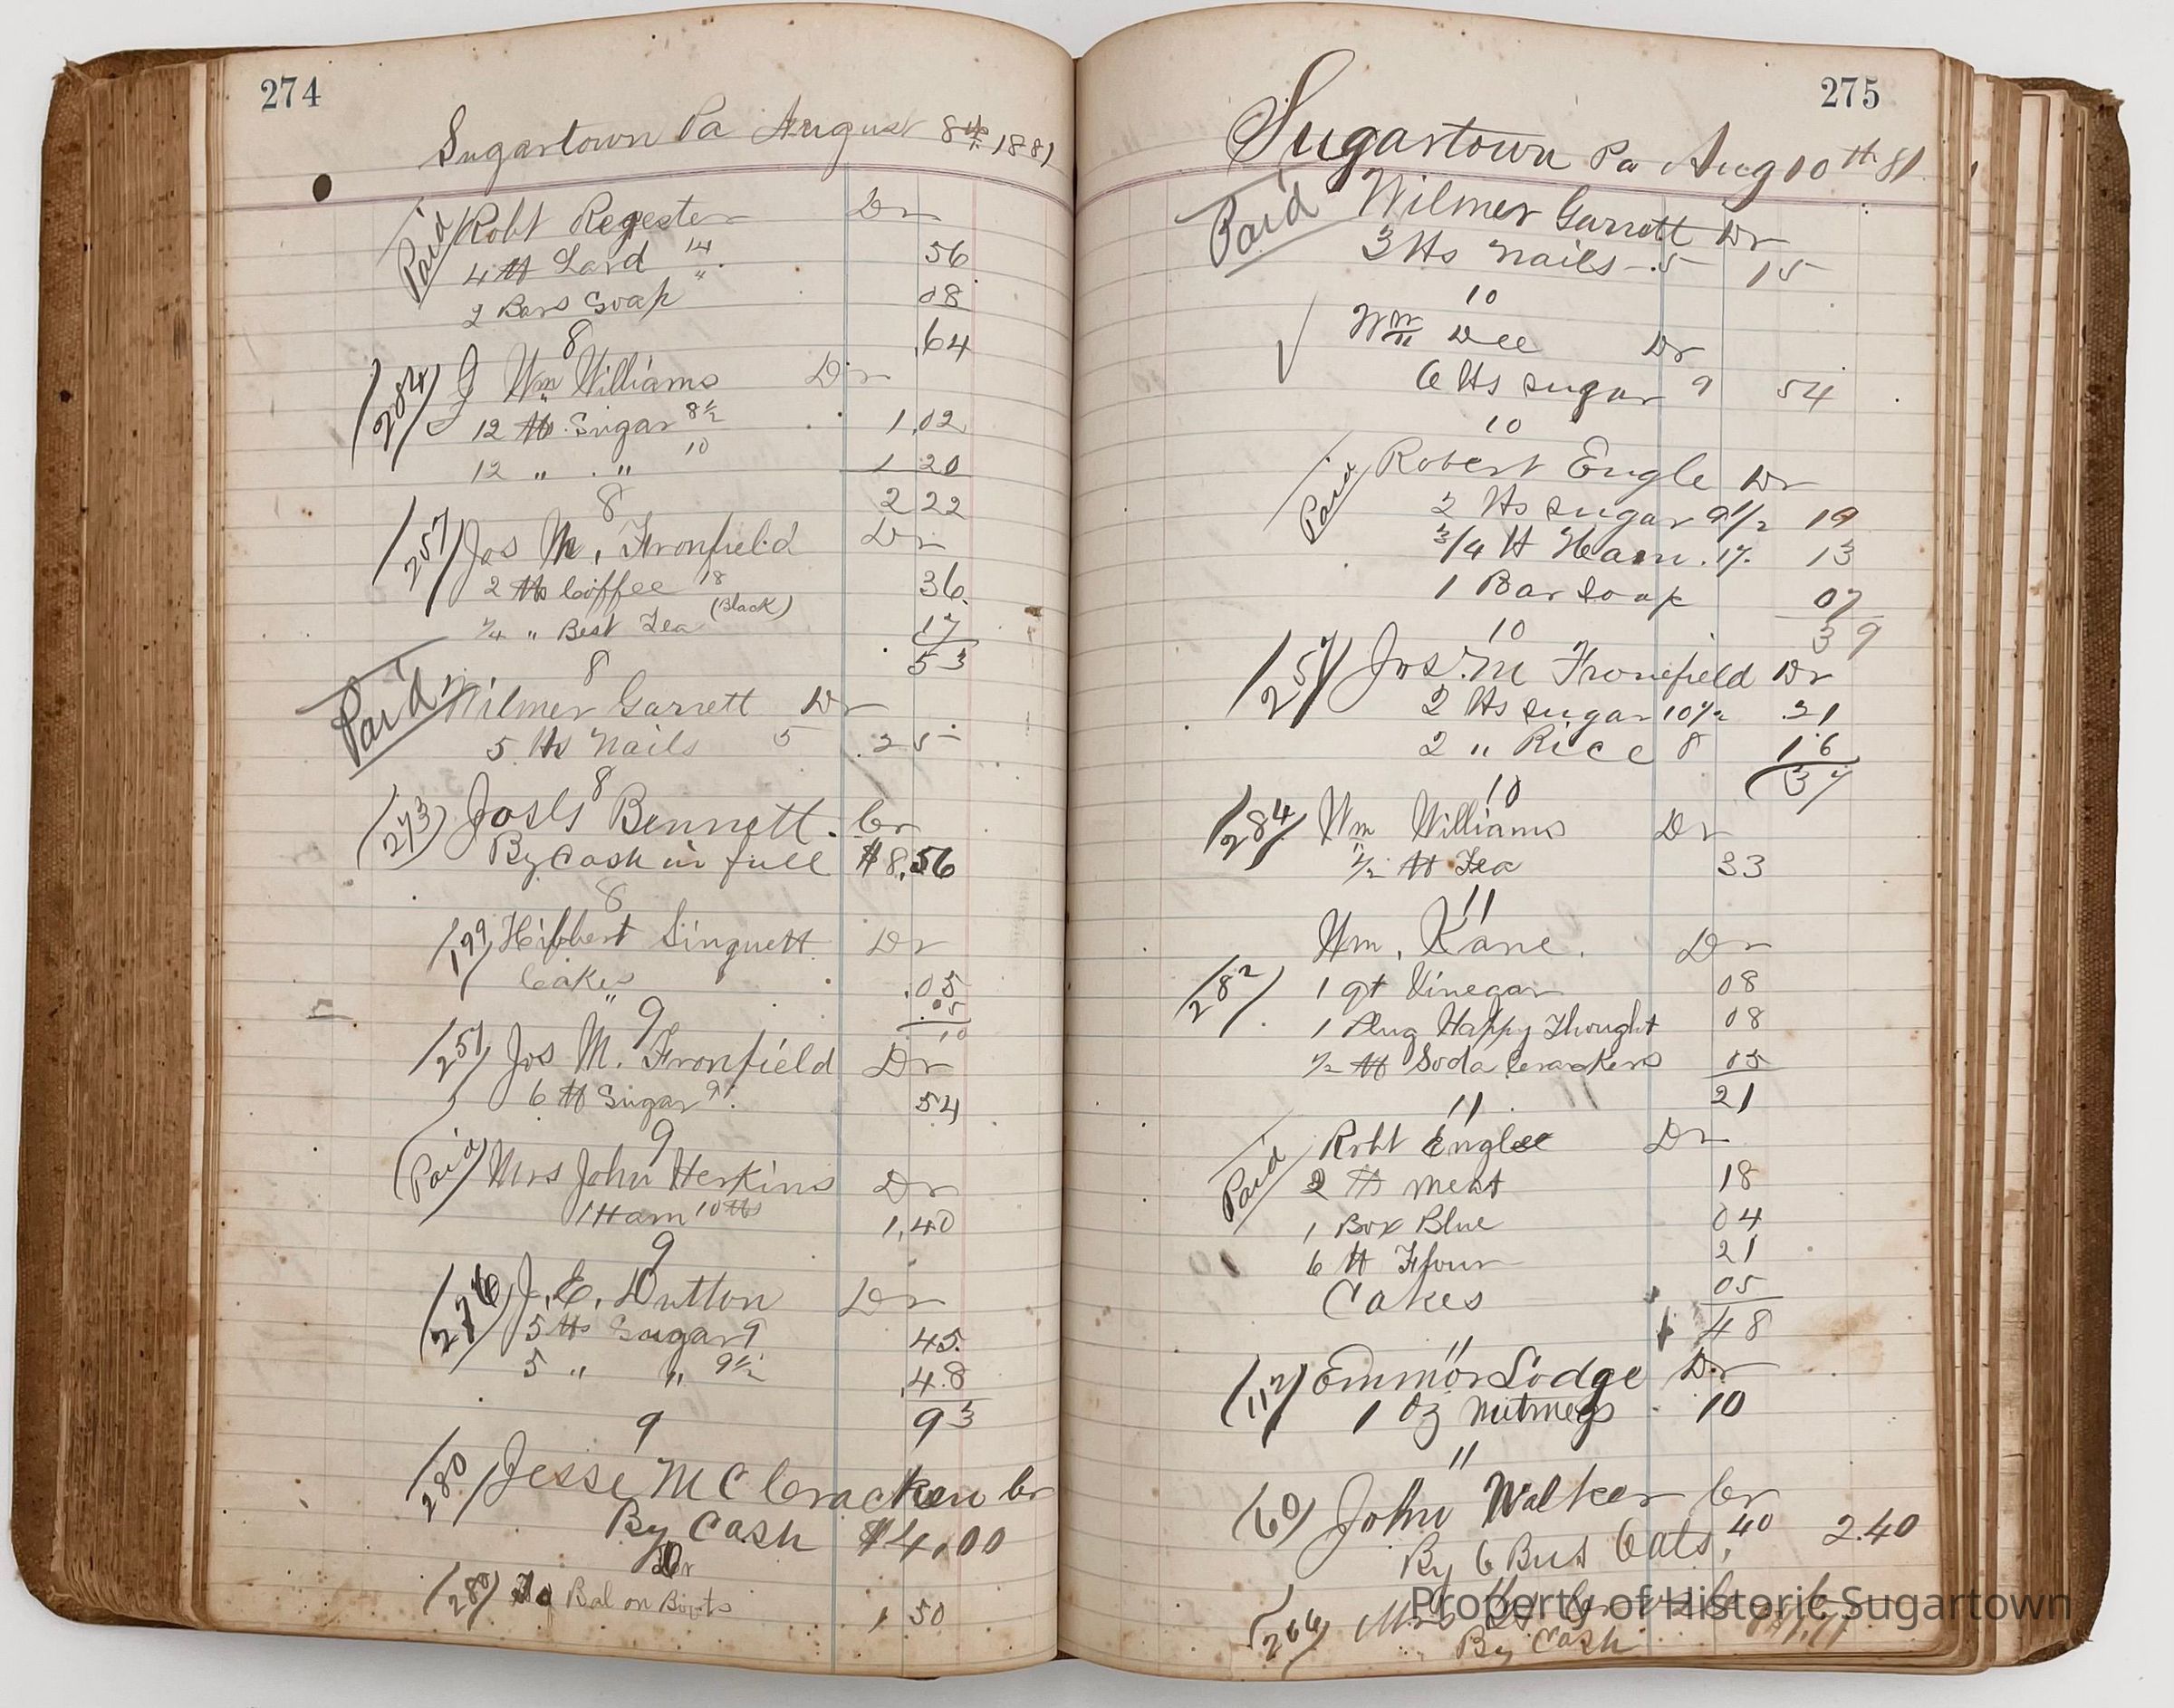 274
Sugartown Pa August 8th 1881
Paid Robt Regester Dr
4 lb Lard 14 56
2 Bars Soap " 08
.64
8
(284) J Wm Williams Dr
12 lb Sugar 8½ 1,02
12 " " 10 1 20
2 22
8
(257) Jos M, Fronfield Dr
2 lbs Coffee 18 36
¼ " Best Tea (Black) 17
53
8
Paid Wilmer Garrett Dr
5 lbs Nails 5 .25
8
(273) Bennett. Cr
By Cash in full $8.56
8
(199) Hibbert Dr
Cakes .05
" .05
10
9
(257) Jos M. Fronfield Dr
6 lb Sugar 9 54
9
(Paid) Mrs John Herkins Dr
1 Ham 10 lbs 1,40
9
(276) J. E. Dutton Dr
5 lbs Sugar 9 45
5 " " 9½ .48
93
9
(280) Jesse McCracken Cr
By Cash $4.00
Dr
(280) To Bal on Boots 1,50
275
Sugartown Pa Aug 10th 81
Paid Wilmer Garrett Dr
3 lbs Nails .5 15
10
✓ Wm Dee Dr
6 lbs sugar 9 54
10
Paid Robert Engle Dr
2 lbs sugar 9 1/2 19
3/4 lb Ham. 17. 13
1 Bar Soap 07
39
10
(257) Jos. M Fronefield Dr
2 lbs sugar 10½ .21
2 " Rice 8 16
37
10
(284) Wm Williams Dr
½ lb Tea 33
11
Wm. Kane. Dr
(282) 1 qt Vinegar 08
1 Plug Happy Thought 08
½ lb Soda Crackers 05
21
11
Paid Robt Englee Dr
2 lb Meat 18
1 Box Blue 04
6 lb Flour 21
Cakes 05
48
11
(112) Emmor Lodge Dr
1 Oz Nutmegs 10
11
(60) John Walker Cr
By 6 Bus Oats, 40 2.40
(266) Mrs
By Cash
Property of Historic Sugartown